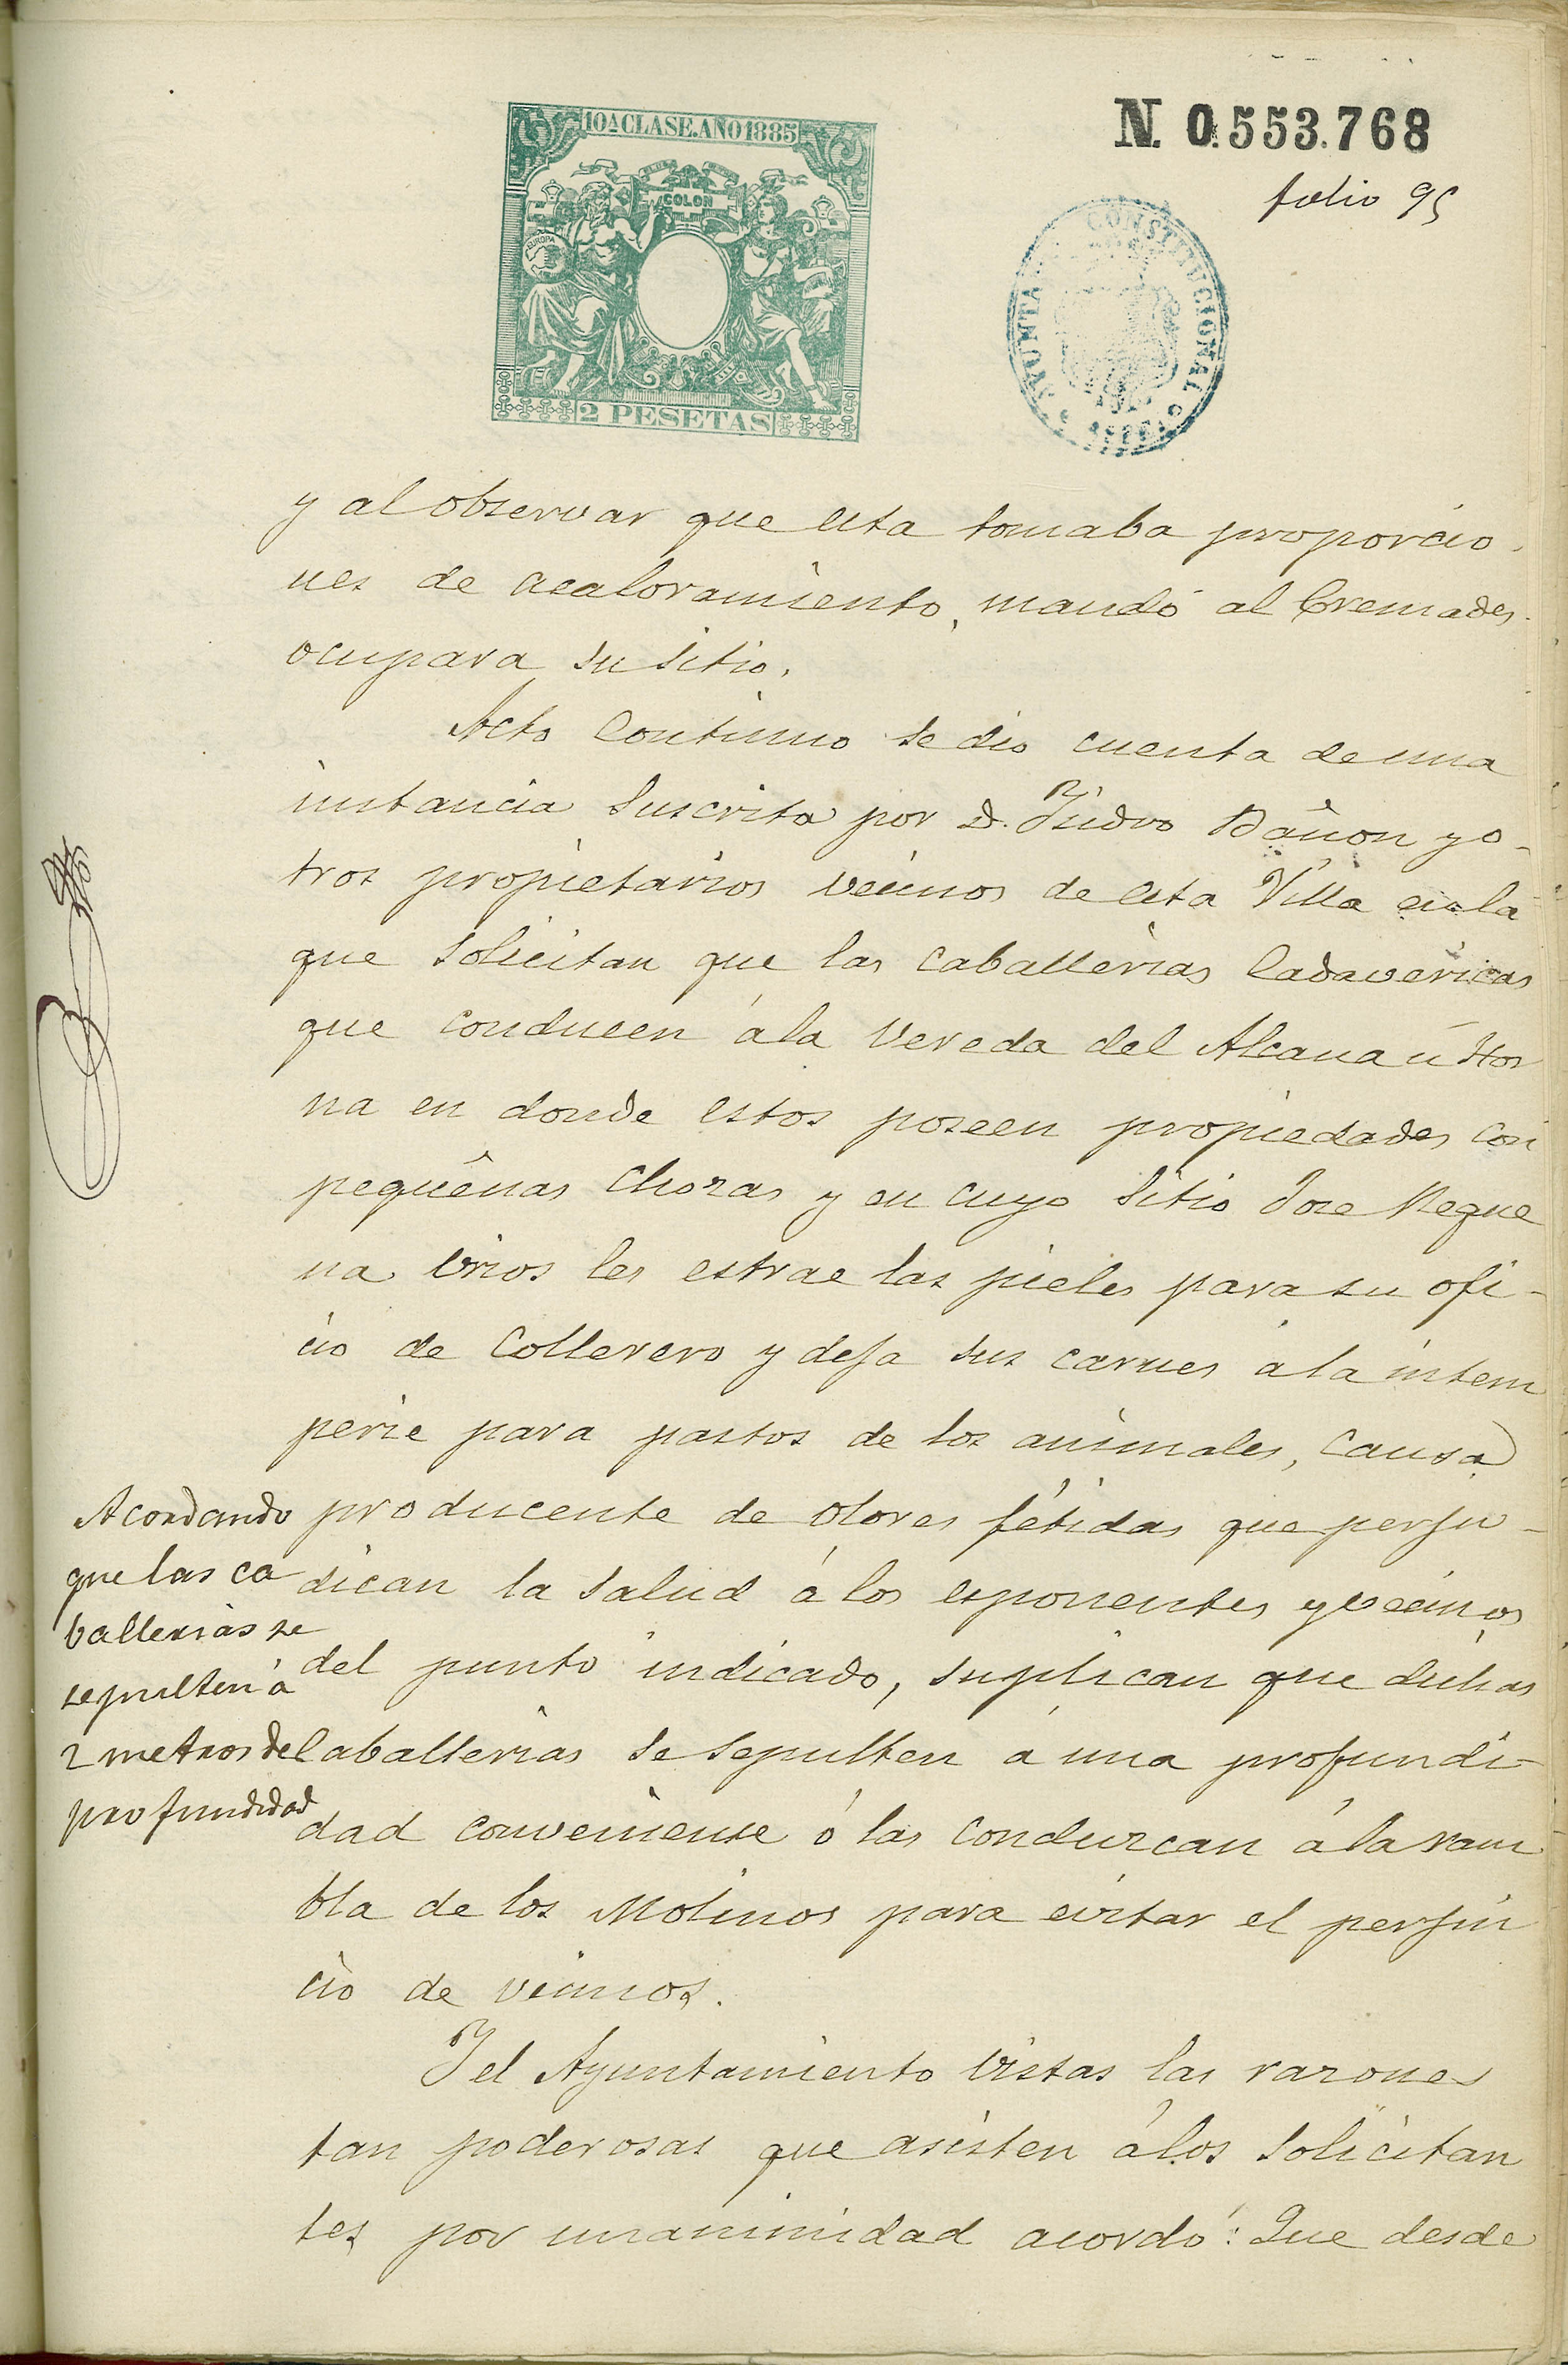 10ª CLASE. AÑO 1885
COLON
EUROPA
2 PESETAS
N. 0.553.768
folio 95
CONSTITUCIONAL
y al observar que esta tomaba proporcio-
nes de acaloramiento, mandó al Cremades
ocupara su sitio.
Acto continuo se dio cuenta de una
instancia suscrita por D. Ysidro Bañon y o-
tros propietarios vecinos de esta Villa en la
que solicitan que las caballerias Cadavericas
que conducen á la Vereda del Alcana ú Hor
na en donde estos poseen propiedades con
pequeñas chozas y en cuyo sitio Jose Reque
na Vrios les estrae las pieles para su ofi-
cio de Collerero y deja sus carnes á la intem
perie para pastos de los animales, causa
producente de olores fétidas que perju-
dican la salud á los esponentes y vecinos
del punto indicado, suplican que dichas
Caballerias se sepulten á una profundi-
dad conveniense ó las conduzcan á la ram
bla de los Molinos para evitar el perjui
cio de vecinos.
Y el Ayuntamiento vistas las razones
tan poderosas que asisten á los solicitan
tes por unanimidad acordó: Que desde
Acordando
que las ca
ballerias se
sepulten á
2 metros de
profundidad